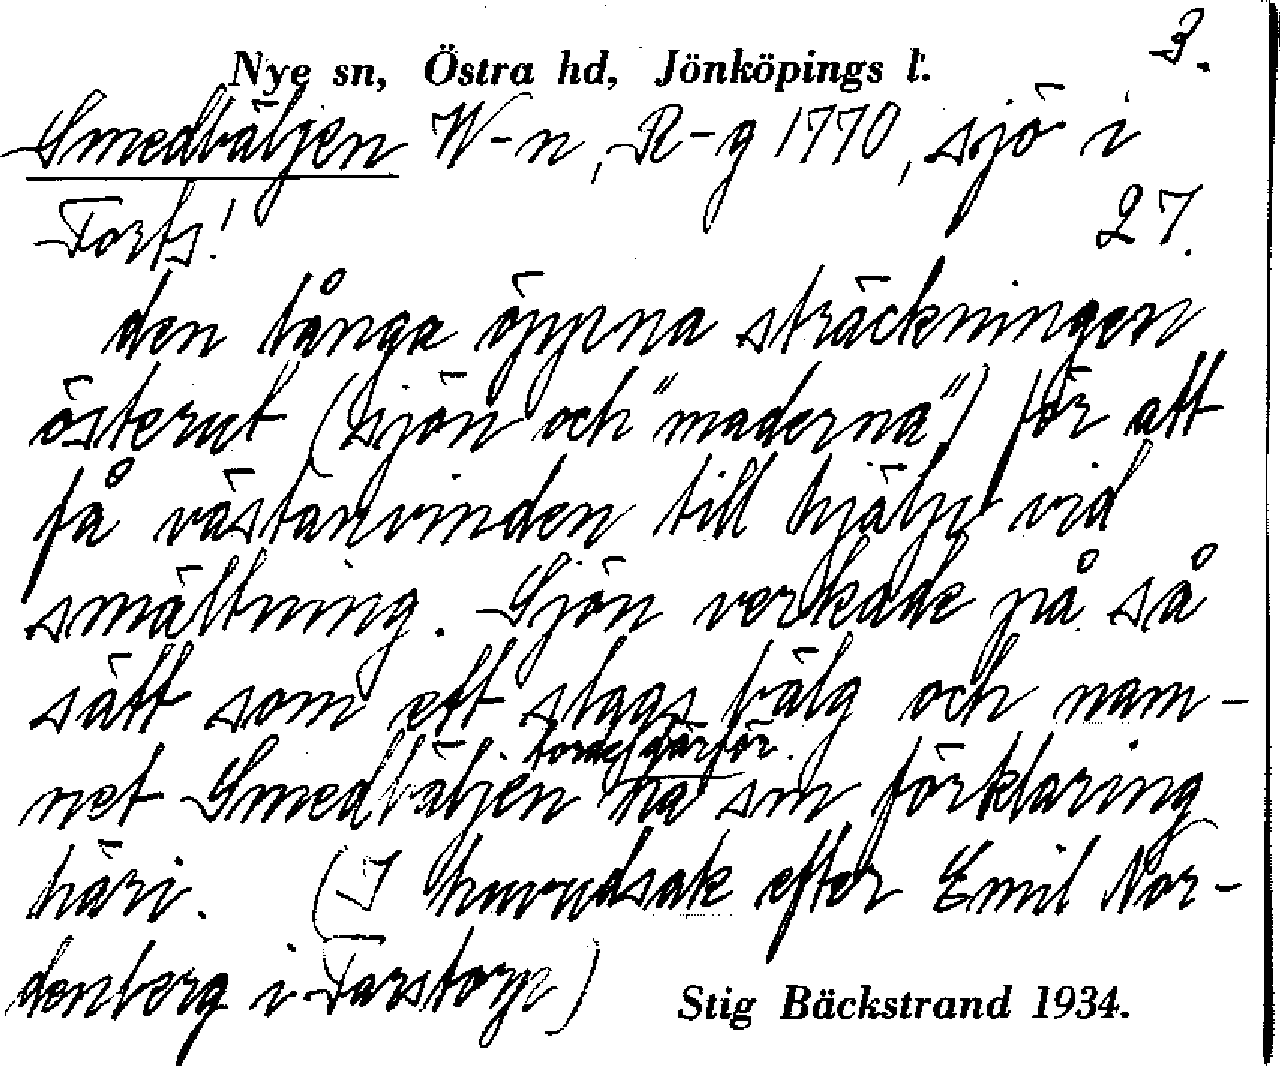 3.
Nye sn, Östra hd, Jönköpings l.
Smedbäljen W-n, R-g 1770, sjö i
Forts! 27.
den långa öppna sträckningen
österut (sjön och "maderna") för att
få västanvinden till hjälp vid
smältning. Sjön verkade på så
sätt som ett slags bälg och nam-
torde därför
net Smedbäljen ha sin förklaring
häri. (I huvudsak efter Emil Nor-
denberg i Farstorp)
Stig Bäckstrand 1934.